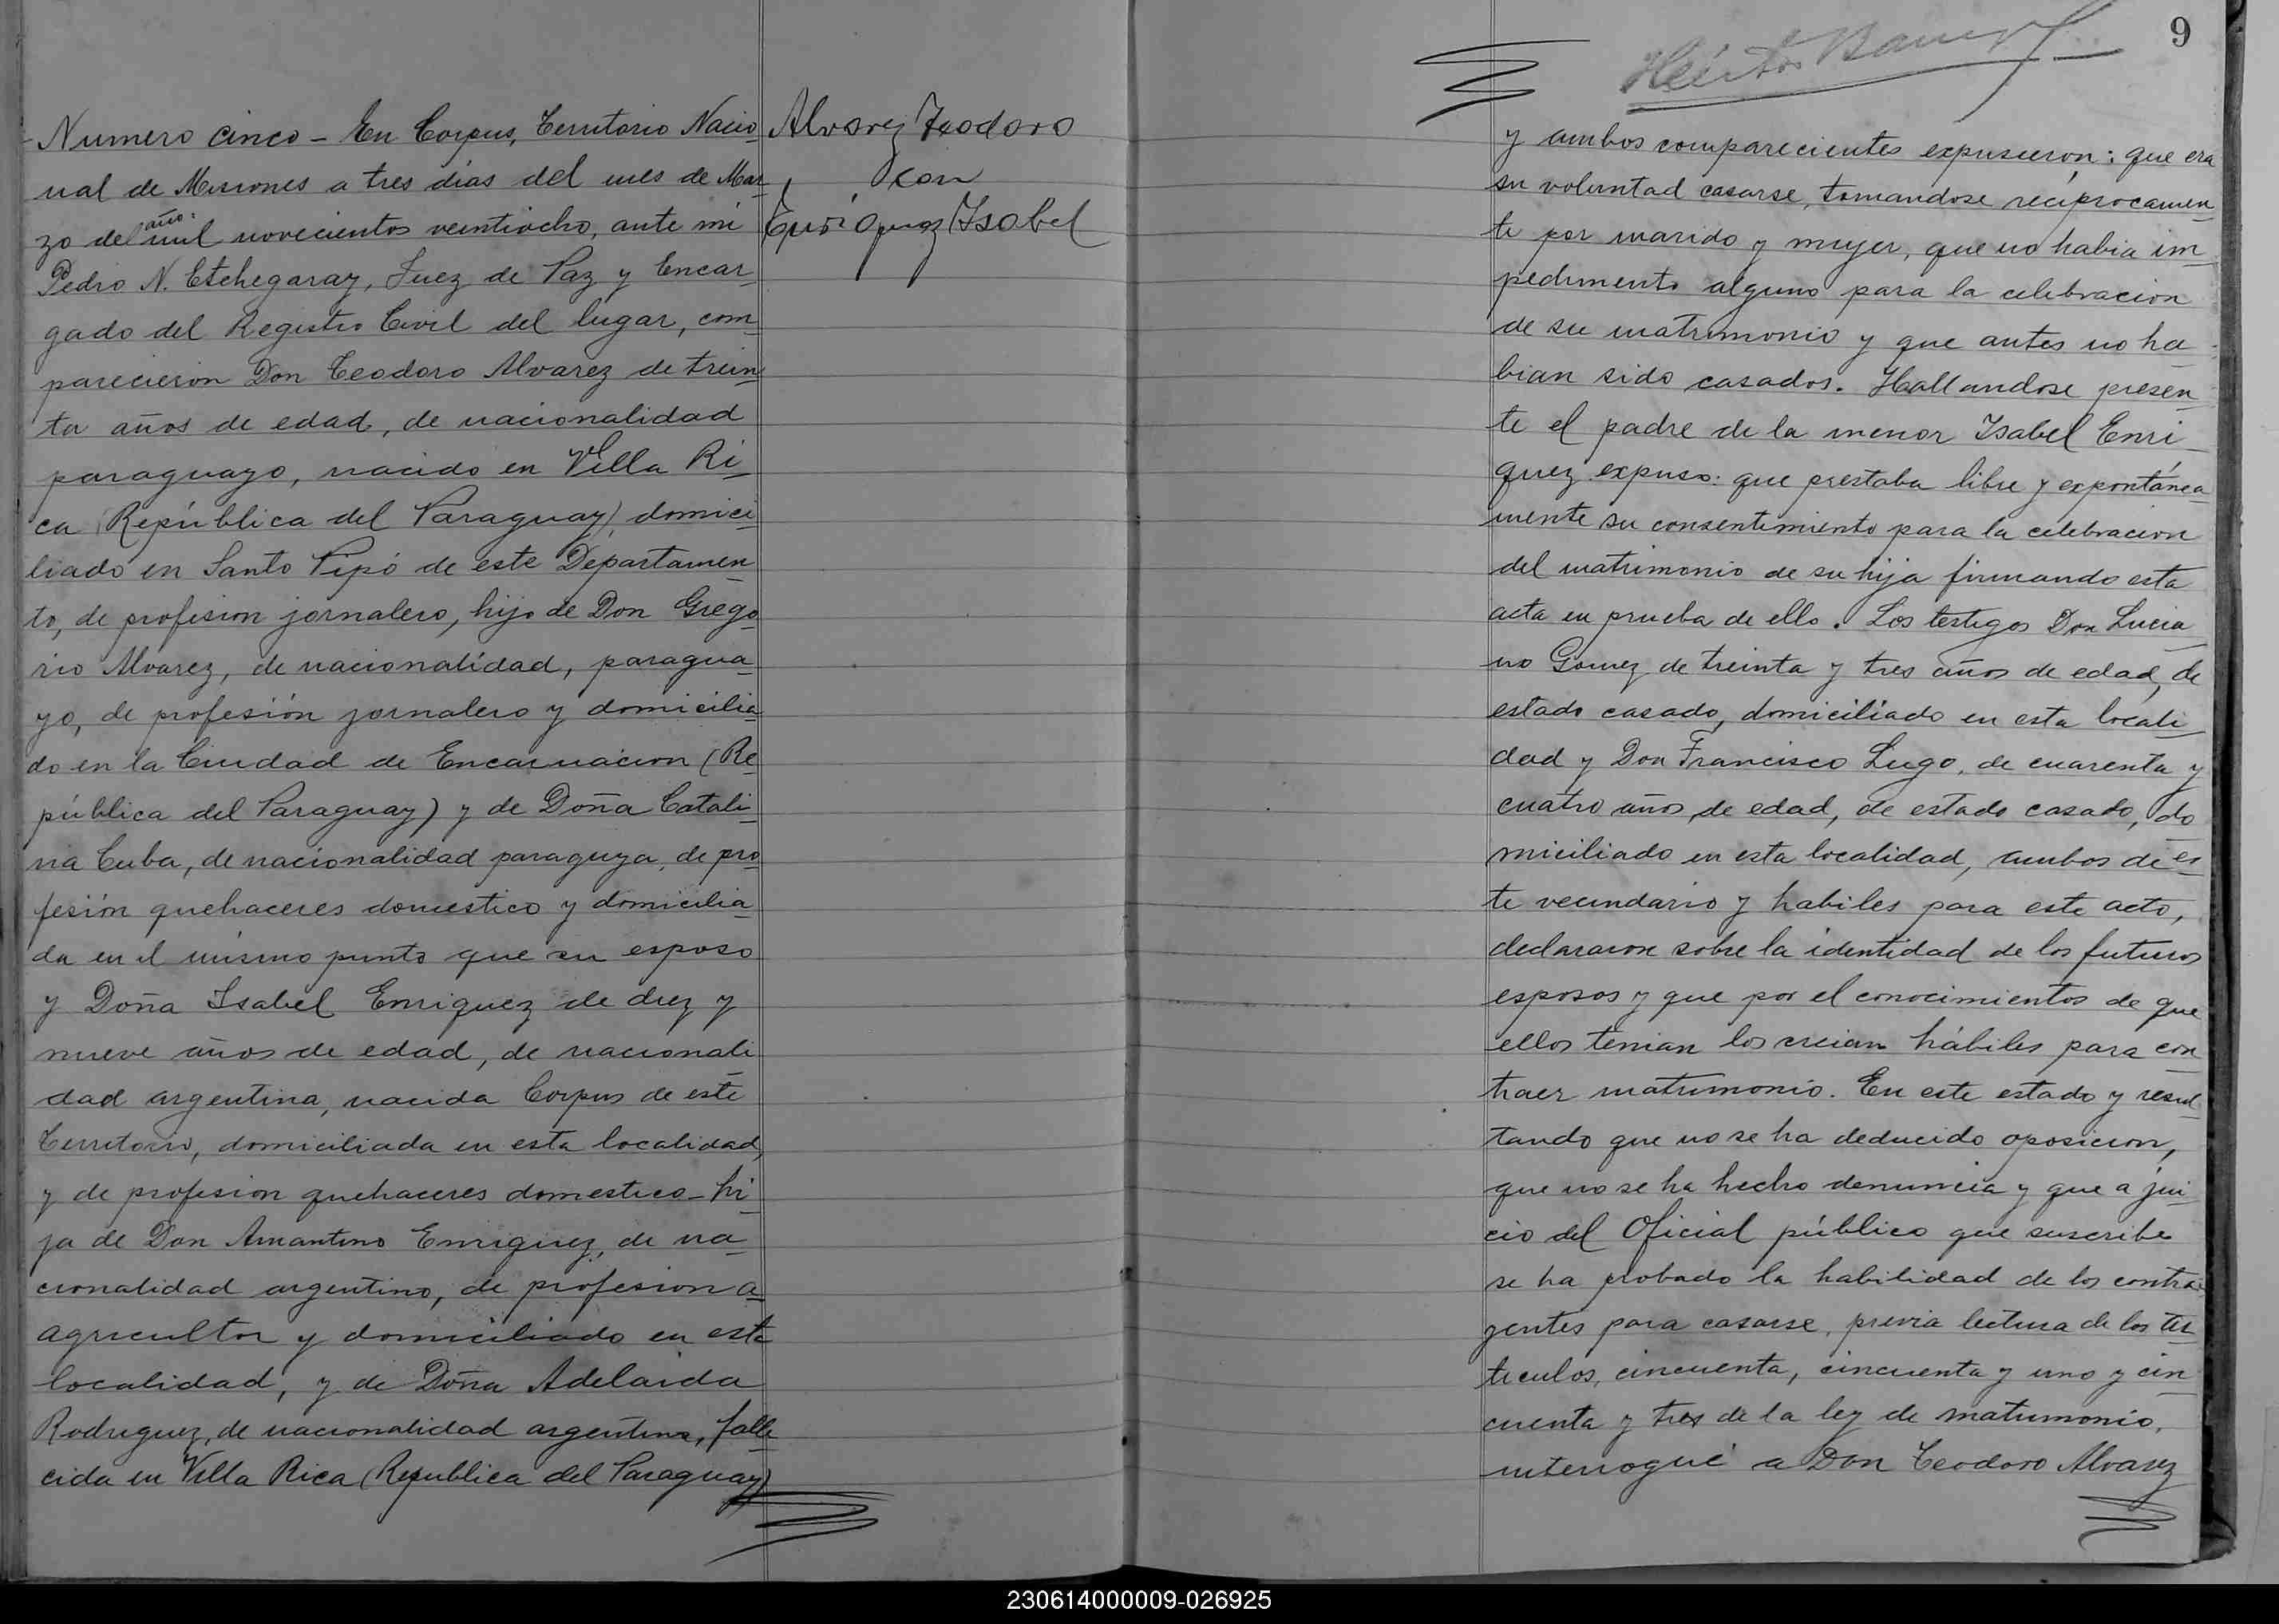 Numero cinco - En Corpus, Territorio Nacio
nal de Misiones a tres dias del mes de Mar
año:
zo del mil novecientos veintiocho, ante mi
Pedro N. Etchegaray, Juez de Paz y Encar
gado del Registro Civil del lugar, com
parecieron Don Teodoro Alvarez de trein
ta años de edad, de nacionalidad
paraguayo, nacido en Villa Ri
ca (República del Paraguay) domici
liado en Santo Pipó de este Departamen
to, de profesion jornalero, hijo de Don Grego
rio Alvarez, de nacionalidad, paragua
yo, de profesión jornalero y domicilia
do en la Ciudad de Encarnacion (Re
pública del Paraguay) y de Doña Catali
na Cuba, de nacionalidad paraguya, de pro
fesión quehaceres domestico y domicilia
da en el mismo punto que su esposo
y Doña Isabel Enriquez de diez y
nueve años de edad, de nacionali
dad argentina, nacida Corpus de este
Territorio, domiciliada en esta localidad,
y de profesion quehaceres domestico - hi
ja de Don Amantino Enriquez, de na
cionalidad argentino, de profesion a
agricultor y domiciliado en esta
localidad, y de Doña Adelaida
Rodriguez, de nacionalidad argentina, falle
cida en Villa Rica (Republica del Paraguay)
Alvarez Teodoro
con
Enriquez Isabel
9
Héctor
y ambos comparecientes expusieron: que era
su voluntad casarse, tomandose reciprocamen
te por marido y mujer, que no habia im
pedimento alguno para la celebracion
de su matrimonio y que antes no ha
bian sido casados. Hallandose presen
te el padre de la menor Isabel Enri
quez expuso: que prestaba libre y expontánea
mente su consentimiento para la celebracion
del matrimonio de su hija firmando esta
acta en prueba de ello. Los testigos Don Lucia
no Gomez de treinta y tres años de edad, de
estado casado, domiciliado en esta locali
dad y Don Francisco Lugo, de cuarenta y
cuatro años, de edad, de estado casado, do
miciliado en esta localidad, ambos de es
te vecindario y habiles para este acto,
declararon sobre la identidad de los futuros
esposos y que por el conocimientos de que
ellos tenian los creian hábiles para con
traer matrimonio. En este estado y resul
tando que no se ha deducido oposicion,
que no se ha hecho denuncia y que a jui
cio del Oficial público que suscribe
se ha probado la habilidad de los contra
yentes para casarse, previa lectura de los
ticulos, cincuenta, cincuenta y uno y cin
cuenta y tres de la ley de matrimonio,
interrogué a Don Teodoro Alvarez
230614000009-026925